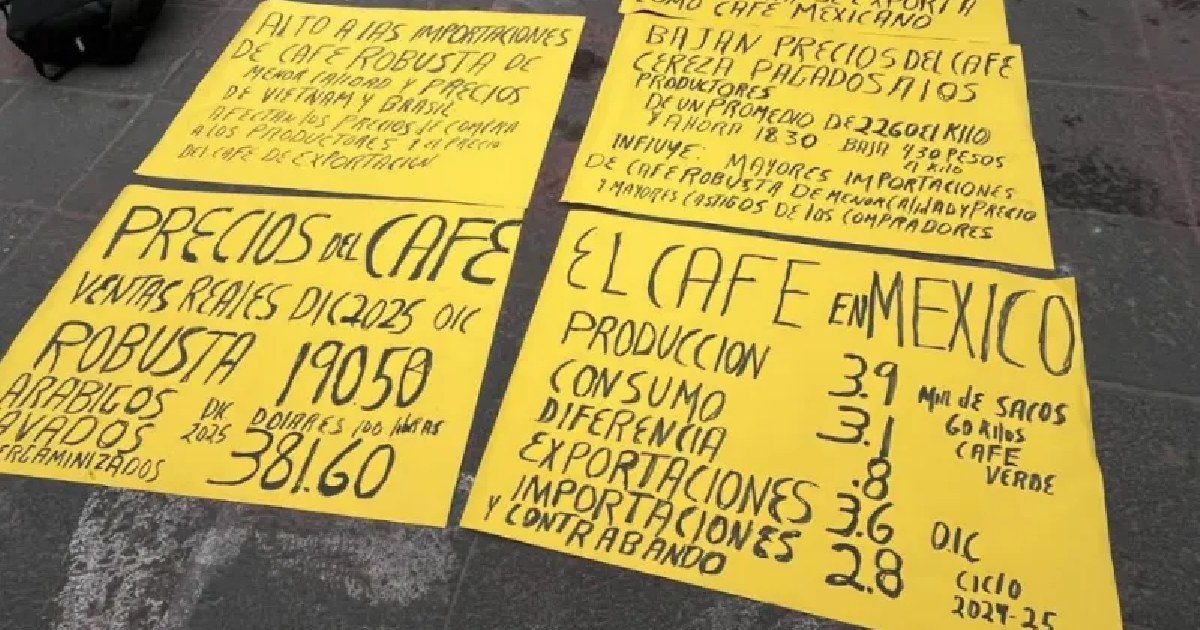 ALTO A LAS IMPORTACIONES
DE CAFE ROBUSTA DE
MENOR CALIDAD Y PRECIOS
DE VIETNAM Y BRASIL
AFECTAN LOS PRECIOS DE COMPRA
A LOS PRODUCTORES Y EL PRECIO
DEL CAFE DE EXPORTACION
EXPORTA
COMO CAFE MEXICANO
BAJAN PRECIOS DEL CAFE
CEREZA PAGADOS A LOS
PRODUCTORES
DE UN PROMEDIO DE 2260 EL KILO
Y AHORA 18.30 BAJA 430 PESOS
A KILO
INFLUYE: MAYORES IMPORTACIONES
DE CAFE ROBUSTA DE MENOR CALIDAD Y PRECIO
Y MAYORES CASTIGOS DE LOS COMPRADORES
PRECIOS DEL CAFE
VENTAS REALES DIC2025 OIC
ROBUSTA 19050
ARABIGOS DIC DOLARES 100 LIBRAS
AVADOS 2025
ERGAMINIZADOS 381.60
EL CAFE EN MEXICO
PRODUCCION 3.9 MILL DE SACOS
CONSUMO 3.1 60 KILOS
DIFERENCIA .8 CAFE VERDE
EXPORTACIONES 3.6 DIC
IMPORTACIONES 2.8 CICLO
Y CONTRABANDO 2024-25